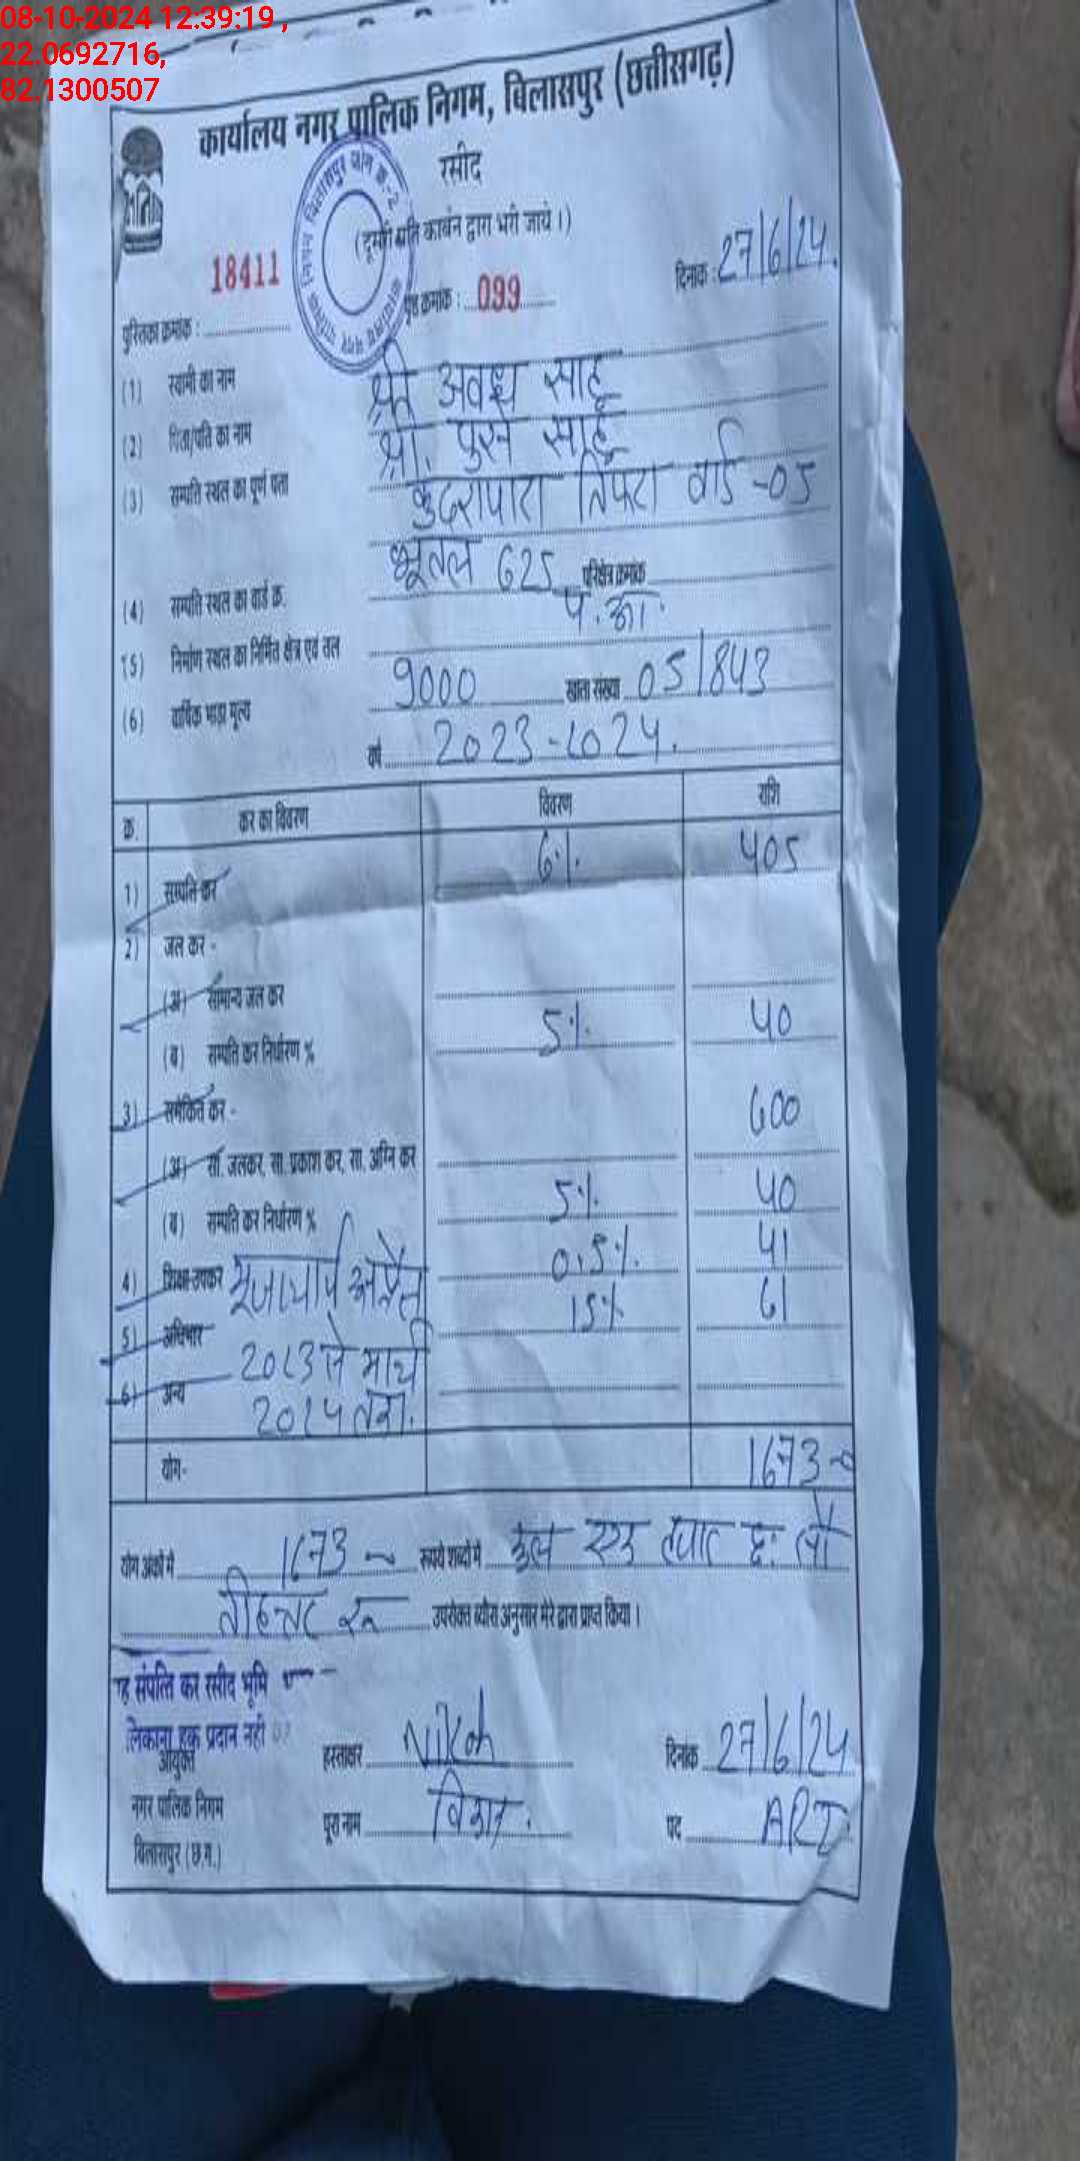 08-10-2024 12:39:19 ,
22.0692716,
82.1300507
कार्यालय नगर पालिक निगम, बिलासपुर (छत्तीसगढ़)
रसीद
(दूसरी प्रति कार्बन द्वारा भरी जाये।)
18411
पुस्तिका क्रमांक : पृष्ठ क्रमांक : 099 दिनांक : 27/6/24.
(1) स्वामी का नाम श्री अवध साहू
(2) पिता/पति का नाम श्री. साहू
(3) सम्पति स्थल का पूर्ण पता कुदरापारा तिफरा वार्ड -05
(4) सम्पति स्थल का वार्ड क्र. भूतल 625 परिक्षेत्र क्रमांक
(5) निर्माण स्थल का निर्मित क्षेत्र एवं तल प. का.
(6) वार्षिक भाड़ा मूल्य 9000 खाता संख्या 05/843
वर्ष 2023-2024.
क्र. कर का विवरण विवरण राशि
1) सम्पति कर 6% 405
2) जल कर -
(अ) सामान्य जल कर
(ब) सम्पति कर निर्धारण % 5% 40
3) समेकित कर - 600
(अ) सा. जलकर, सा. प्रकाश कर, सा. अग्नि कर
(ब) सम्पति कर निर्धारण % 5% 40
4) शिक्षा-उपकर अप्रैल 0.5% 41
5) अधिभार 2023 से मार्च 15% 61
6) अन्य 2024 तक.
योग- 1673
योग अंको में 1673 रूपये शब्दो में कुल एक हजार छः सौ
तीहत्तर रू उपरोक्त ब्योरा अनुसार मेरे द्वारा प्राप्त किया।
संपत्ति कर रसीद भूमि
हक प्रदान नही
आयुक्त
नगर पालिक निगम
बिलासपुर (छ.ग.)
हस्ताक्षर दिनांक 27/6/24
पूरा नाम विकाश. पद ART